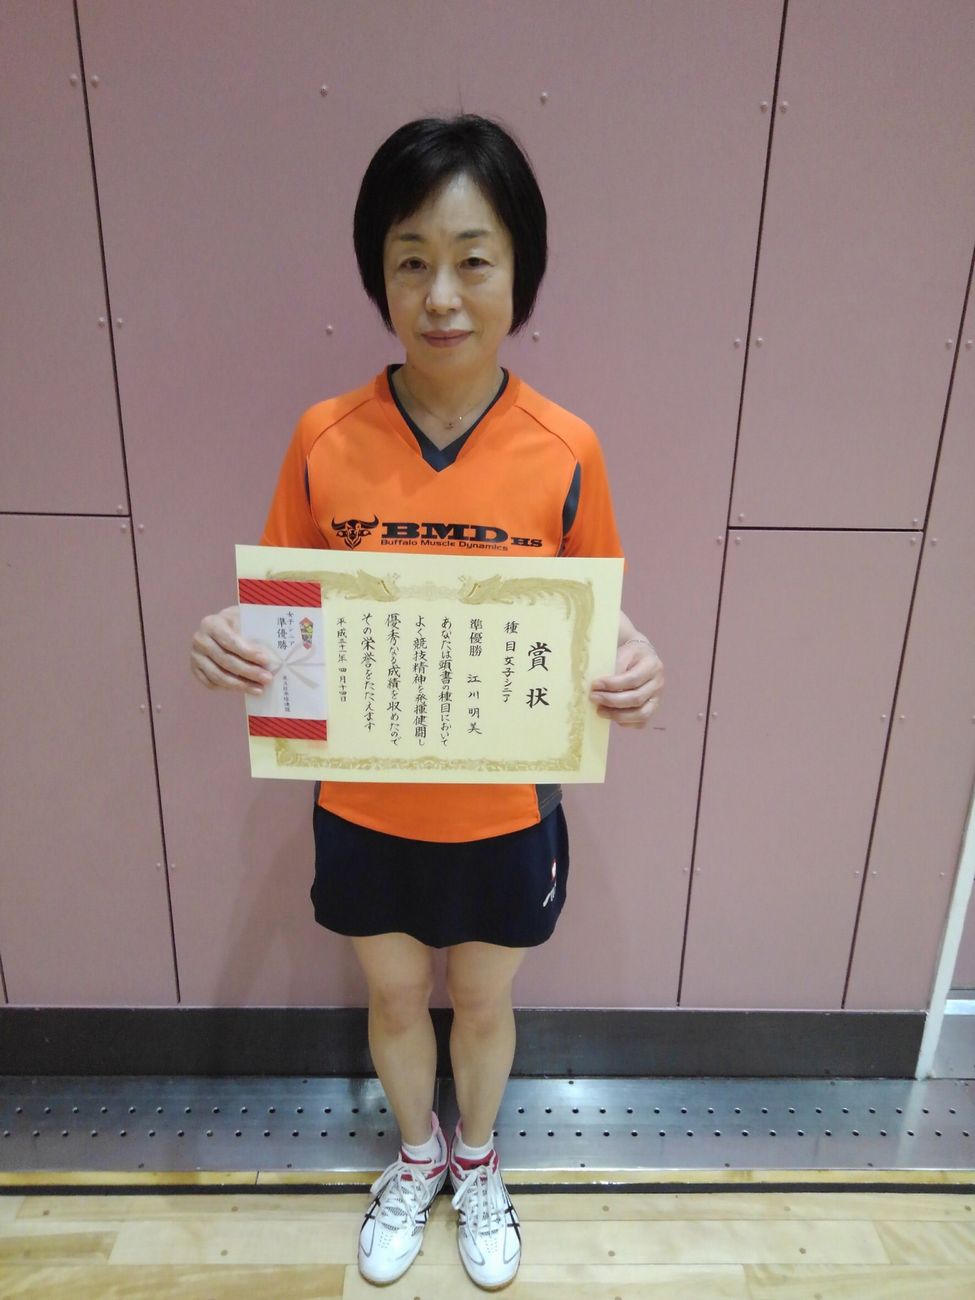 BMD HS
Buffalo Muscle Dynamics
賞状
種目 女子シニア
準優勝 江川明美
あなたは頭書の種目において
よく競技精神を発揮健闘し
優秀なる成績を収めたので
その栄誉をたたえます
平成三十一年 四月十四日
女子シニア
準優勝